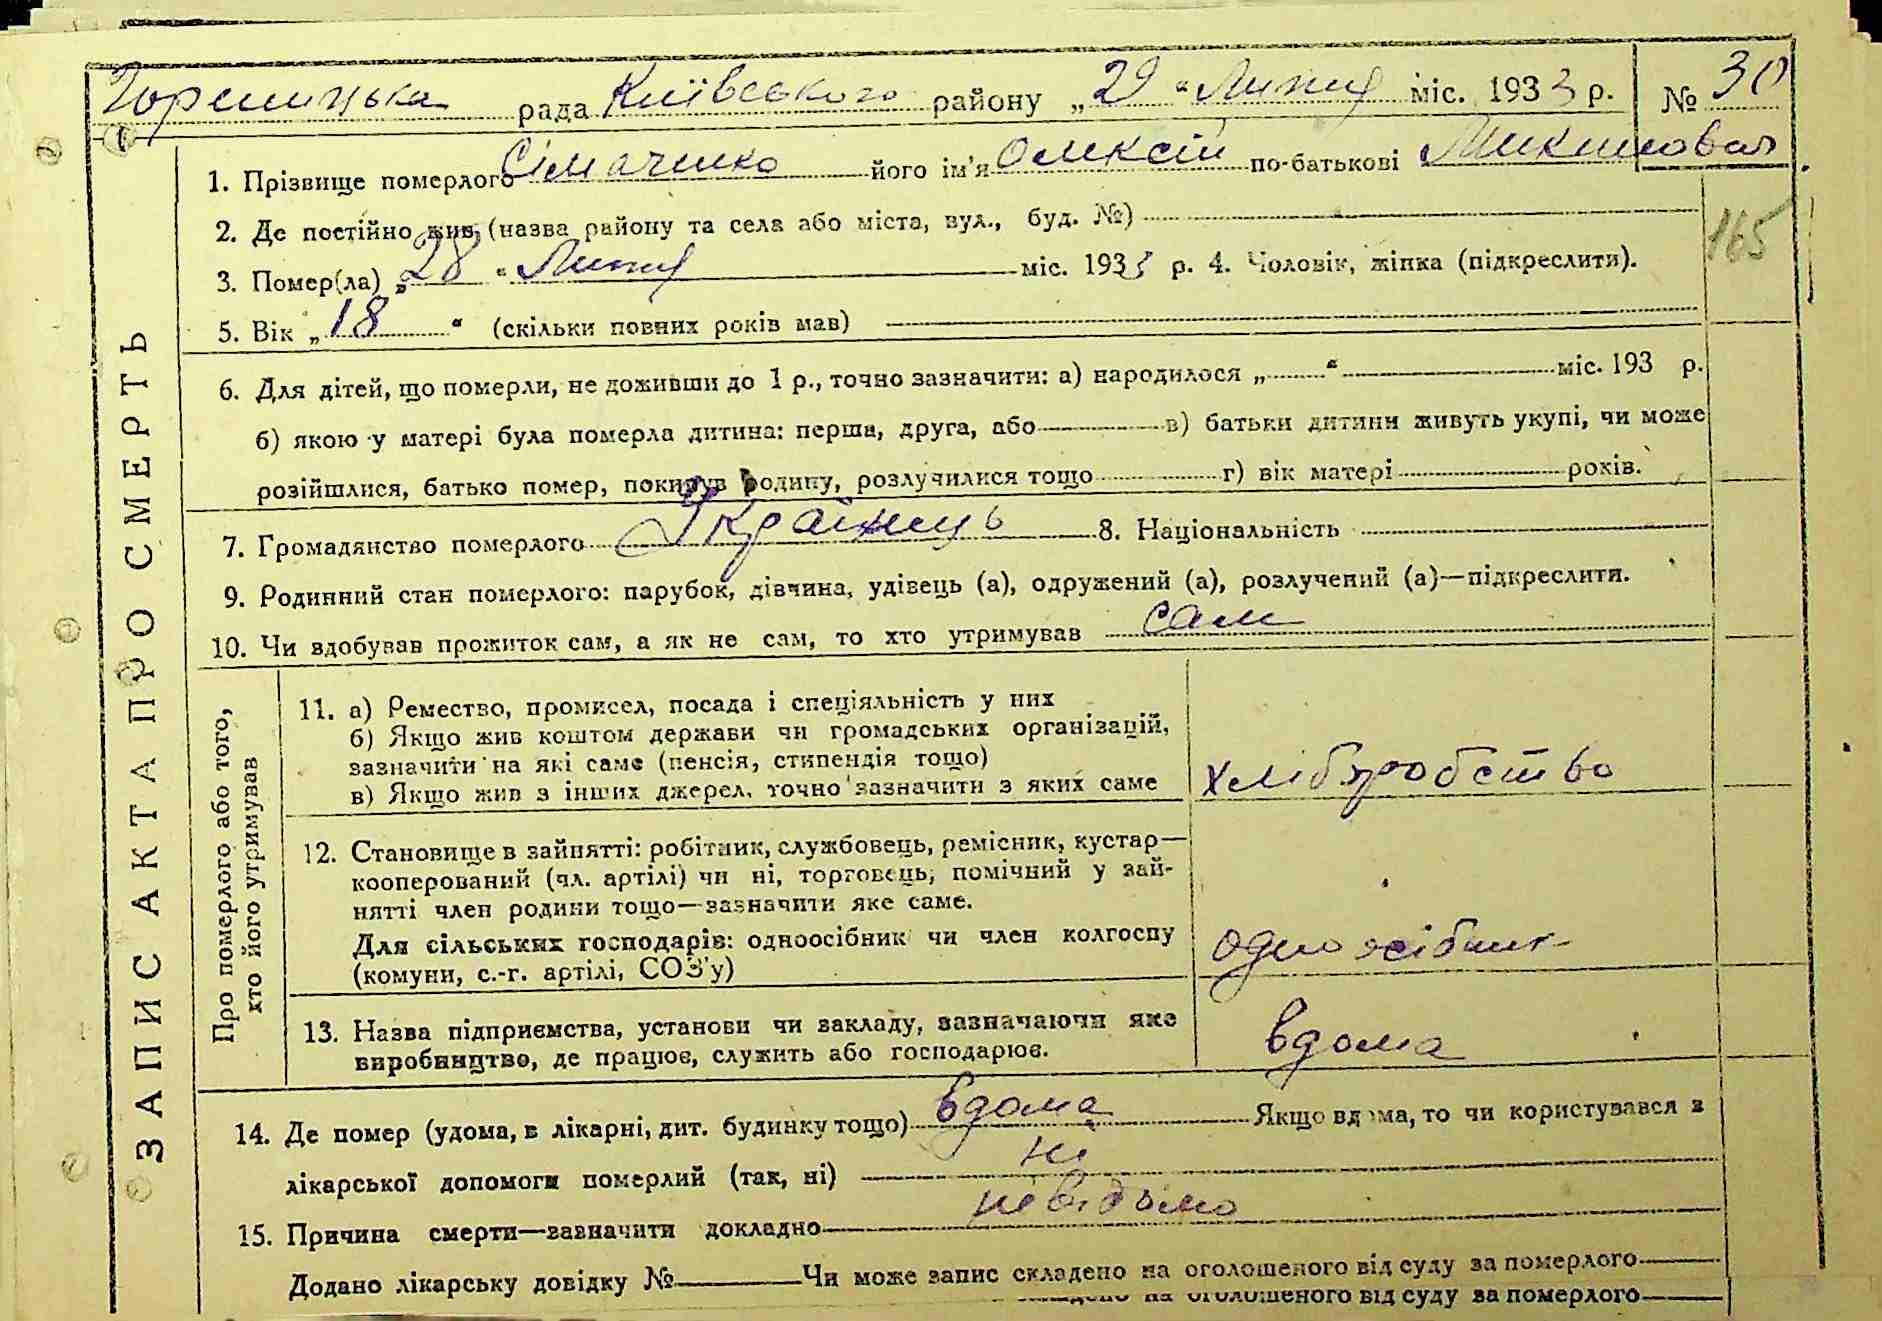 Гореницька рада Київського району „29“ Липня міс. 1933 р. № 30
1. Прізвище померлого Сімаченко його ім'я Олексій по-батькові
2. Де постійно жив, (назва району та села або міста, вул., буд. №)
165
3. Помер(ла) „28“ Липня міс. 1933 р. 4. Чоловік, жінка (підкреслити).
5. Вік „18“ (скільки повних років мав)
6. Для дітей, що померли, не доживши до 1 р., точно зазначити: а) народилося „ “ міс. 193 р.
б) якою у матері була померла дитина: перша, друга, або в) батьки дитини живуть укупі, чи може
розійшлися, батько помер, покинув родину, розлучилися тощо г) вік матері років.
7. Громадянство померлого Українець 8. Національність
9. Родинний стан померлого: парубок, дівчина, удівець (а), одружений (а), розлучений (а)—підкреслити.
10. Чи здобував прожиток сам, а як не сам, то хто утримував сам
ЗАПИС АКТА ПРО СМЕРТЬ
Про померлого або того,
хто його утримував
11. а) Ремество, промисел, посада і спеціяльність у них
б) Якщо жив коштом держави чи громадських організацій,
зазначити на які саме (пенсія, стипендія тощо)
в) Якщо жив з інших джерел, точно зазначити з яких саме
хліборобство
12. Становище в зайнятті: робітник, службовець, ремісник, кустар—
кооперований (чл. артілі) чи ні, торговець, помічний у зай-
нятті член родини тощо—зазначити яке саме.
Для сільських господарів: одноосібник чи член колгоспу
(комуни, с.-г. артілі, СОЗ'у)
одноосібник
13. Назва підприємства, установи чи закладу, зазначаючи яке
виробництво, де працює, служить або господарює.
вдома
14. Де помер (удома, в лікарні, дит. будинку тощо) вдома Якщо вдома, то чи користувався з
лікарської допомоги померлий (так, ні) ні
15. Причина смерти—зазначити докладно невідомо
Додано лікарську довідку № Чи може запис складено на оголошеного від суду за померлого
на оголошеного від суду за померлого